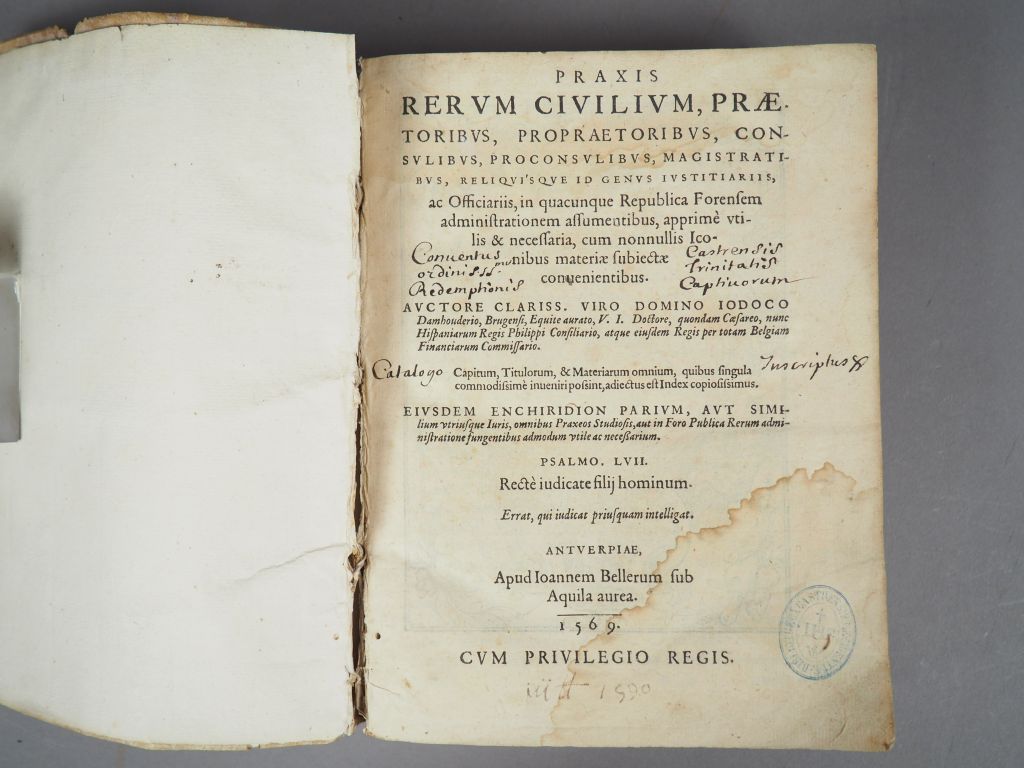 PRAXIS
RERVM CIVILIVM, PRÆ-
TORIBVS, PROPRAETORIBVS, CON-
SVLIBVS, PROCONSVLIBVS, MAGISTRATI-
BVS, RELIQVI'SQVE ID GENVS IVSTITIARIIS,
ac Officiariis, in quacunque Republica Forenſem
adminiſtrationem aſſumentibus, apprimè vti-
lis & neceſſaria, cum nonnullis Ico-
Conventus nibus materiæ ſubiectæ Castrensis
ordinis SS. conuenientibus. Trinitatis
Redemptionis Captivorum
AVCTORE CLARISS. VIRO DOMINO IODOCO
Damhouderio, Brugenſi, Equite aurato, V. I. Doctore, quondam Cæſareo, nunc
Hiſpaniarum Regis Philippi Conſiliario, atque eiuſdem Regis per totam Belgiam
Financiarum Commiſſario.
Catalogo Capitum, Titulorum, & Materiarum omnium, quibus ſingula Inscriptus
commodiſſimè inueniri poſſint, adiectus est Index copioſiſſimus.
EIVSDEM ENCHIRIDION PARIVM, AVT SIMI-
lium vtriuſque Iuris, omnibus Praxeos Studioſis, aut in Foro Publica Rerum admi-
niſtratione fungentibus admodum vtile ac neceſſarium.
PSALMO. LVII.
Rectè iudicate filij hominum.
Errat, qui iudicat priuſquam intelligat.
ANTVERPIAE,
Apud Ioannem Bellerum ſub
Aquila aurea.
1569.
CVM PRIVILEGIO REGIS.